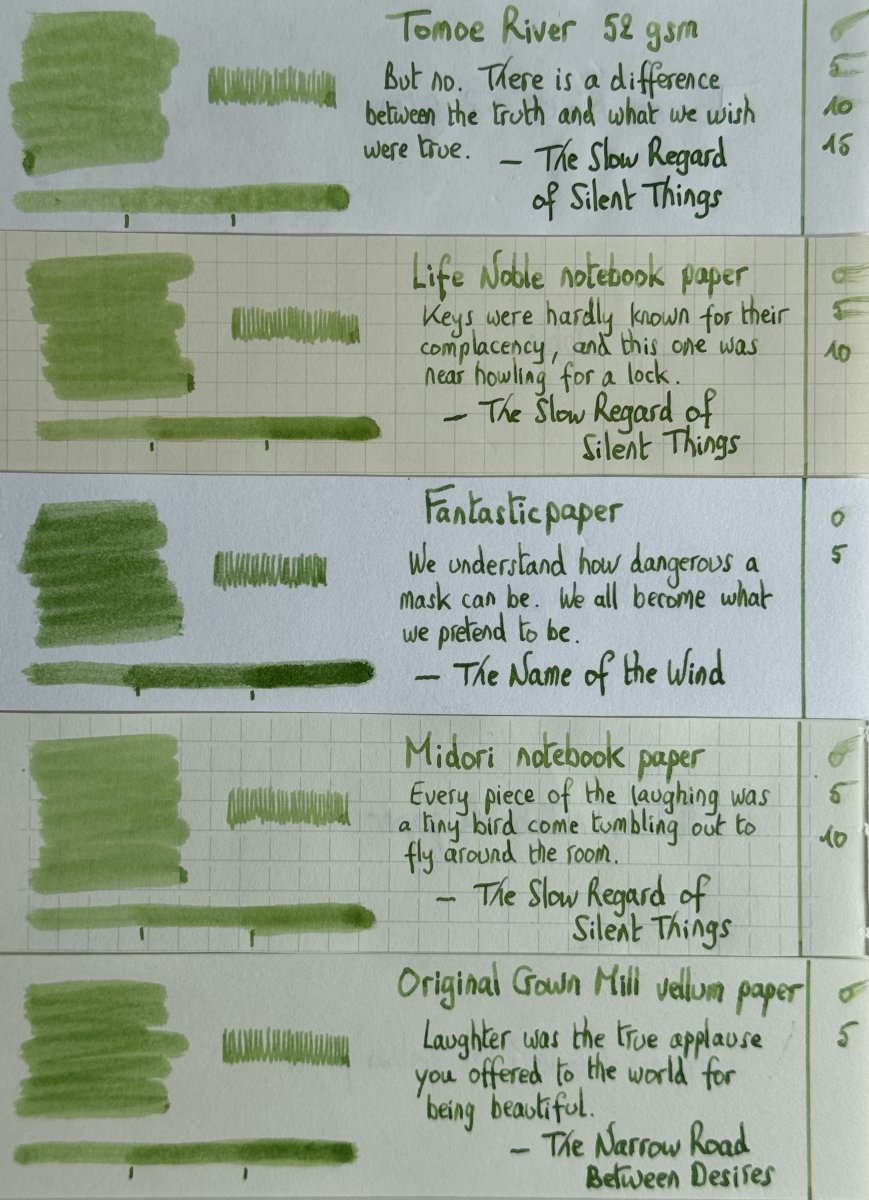 Tomoe River 52 gsm
But no. There is a difference
between the truth and what we wish
were true. – The Slow Regard
of Silent Things
0
5
10
15
Life Noble notebook paper
Keys were hardly known for their
complacency, and this one was
near howling for a lock.
– The Slow Regard of
Silent Things
0
5
10
Fantasticpaper
We understand how dangerous a
mask can be. We all become what
we pretend to be.
– The Name of the Wind
0
5
Midori notebook paper
Every piece of the laughing was
a tiny bird come tumbling out to
fly around the room.
– The Slow Regard of
Silent Things
0
5
10
Original Crown Mill vellum paper
Laughter was the true applause
you offered to the world for
being beautiful.
– The Narrow Road
Between Desires
0
5